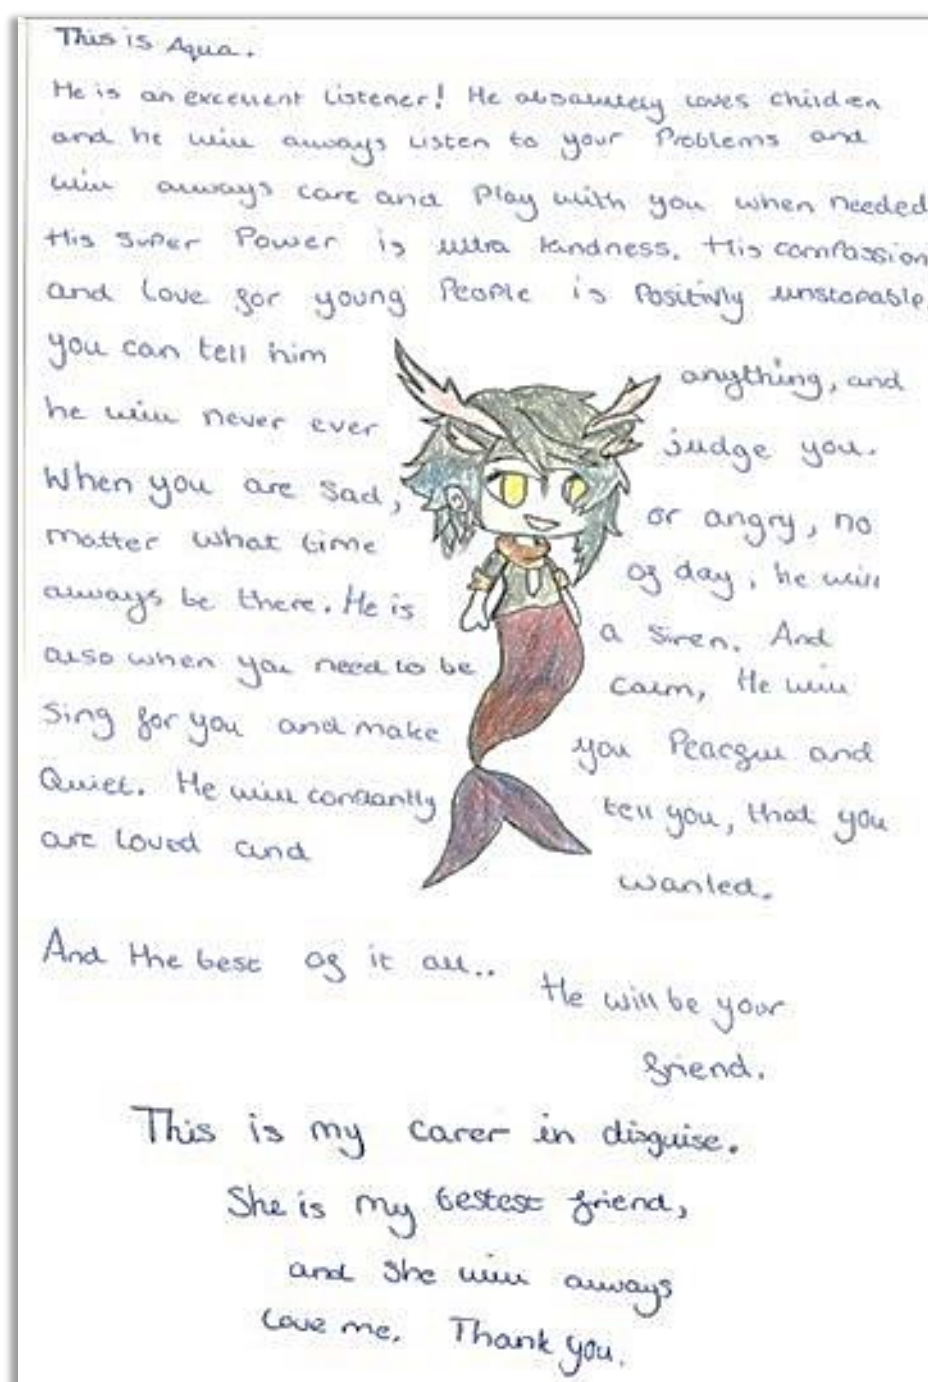 This is Aqua.
He is an excellent listener! He absolutely loves children
and he will always listen to your Problems and
will always care and Play with you when needed
His super Power is ultra kindness. His compassion
and love for young People is Positivly unstopable,
you can tell him anything, and
he will never ever judge you.
When you are sad, or angry, no
matter what time of day, he will
always be there. He is a siren. And
also when you need to be calm, He will
Sing for you and make you Peacful and
Quiet. He will constantly tell you, that you
are loved and wanted.
And the best of it all..
He will be your
friend.
This is my carer in disguise.
She is my bestest friend,
and she will always
love me. Thank you.